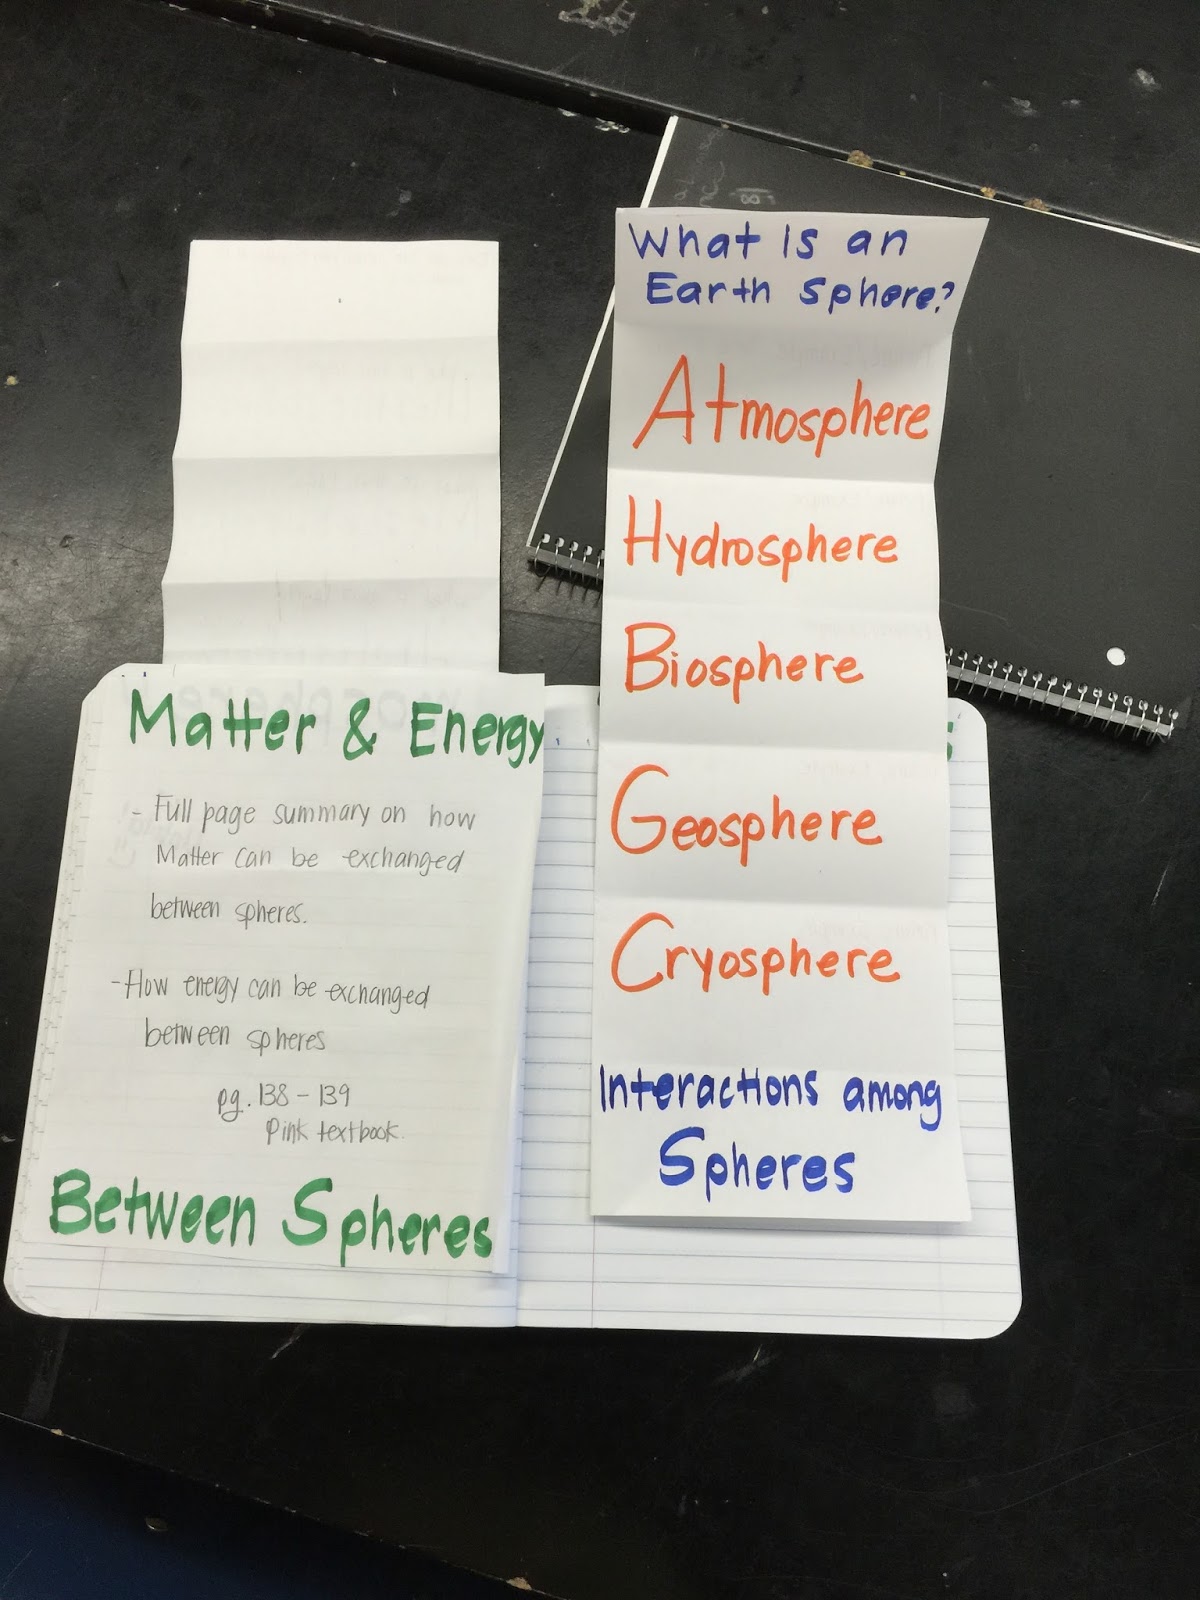 Matter & Energy
- Full page summary on how
Matter can be exchanged
between spheres.
- How energy can be exchanged
between spheres
pg. 138 - 139
Pink textbook.
Between Spheres
What is an
Earth Sphere?
Atmosphere
Hydrosphere
Biosphere
Geosphere
Cryosphere
Interactions among
Spheres